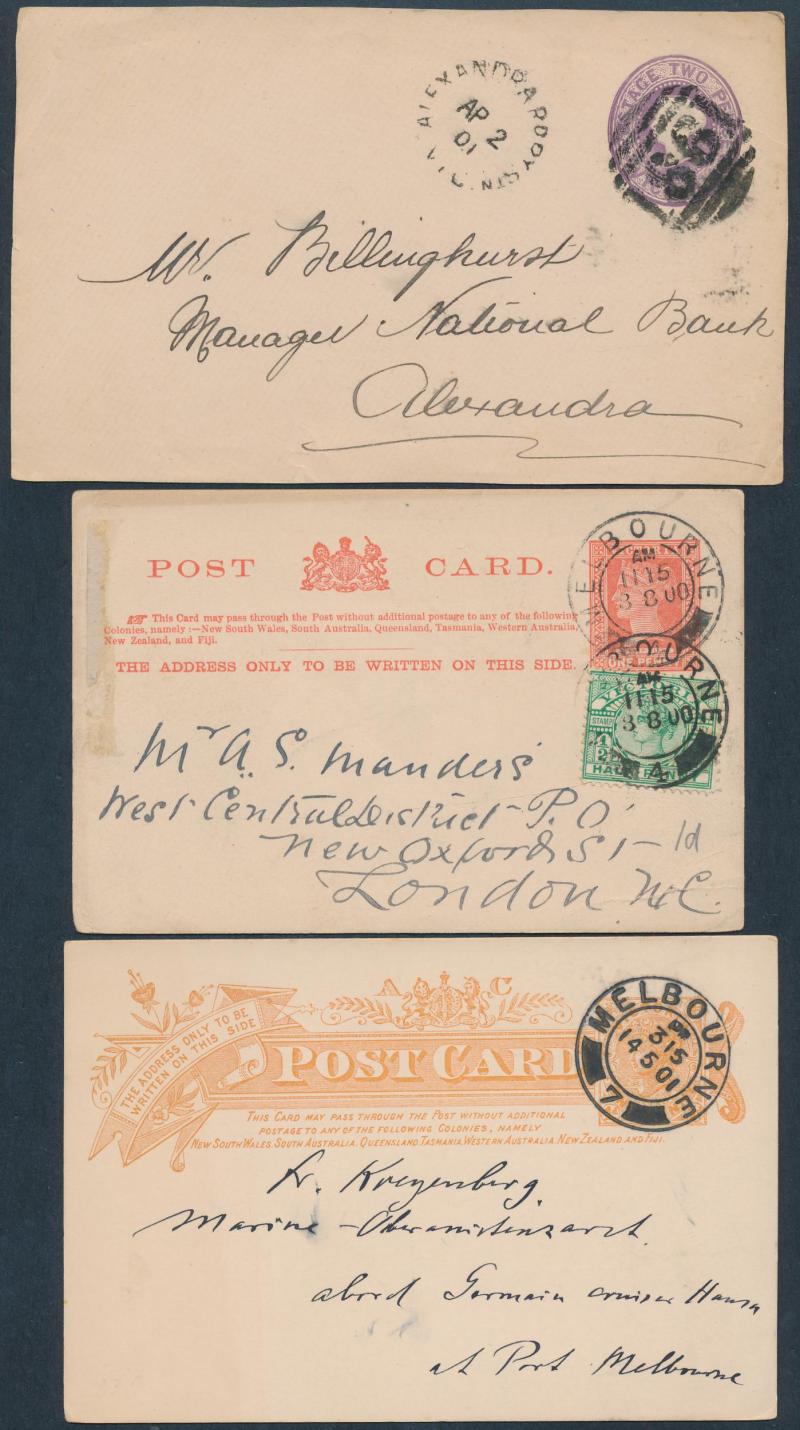 ALEXANDRA RDDYSTN VIC
AP 2
01
POSTAGE TWO PENCE
Mr. Billinghurst
Manager National Bank
Alexandra
POST CARD.
MELBOURNE
AM
11 15
3 8 00
ONE PENNY
This Card may pass through the Post without additional postage to any of the following
Colonies, namely :—New South Wales, South Australia, Queensland, Tasmania, Western Australia,
New Zealand, and Fiji.
THE ADDRESS ONLY TO BE WRITTEN ON THIS SIDE.
MELBOURNE
AM
11 15
3 8 00
4
VICTORIA
STAMP
1/2
HALF PENNY
Mr A. S. Manders
West Central District P.O.
New Oxford St — 1d
London W.C.
A C
THE ADDRESS ONLY TO BE
WRITTEN ON THIS SIDE
POST CARD
MELBOURNE
PM
3 15
14 5 01
7
THIS CARD MAY PASS THROUGH THE POST WITHOUT ADDITIONAL
POSTAGE TO ANY OF THE FOLLOWING COLONIES, NAMELY
NEW SOUTH WALES. SOUTH AUSTRALIA. QUEENSLAND. TASMANIA. WESTERN AUSTRALIA. NEW ZEALAND. AND FIJI.
Kreyenberg
Marine -
abord Germain cruiser Hansa
at Port Melbourne